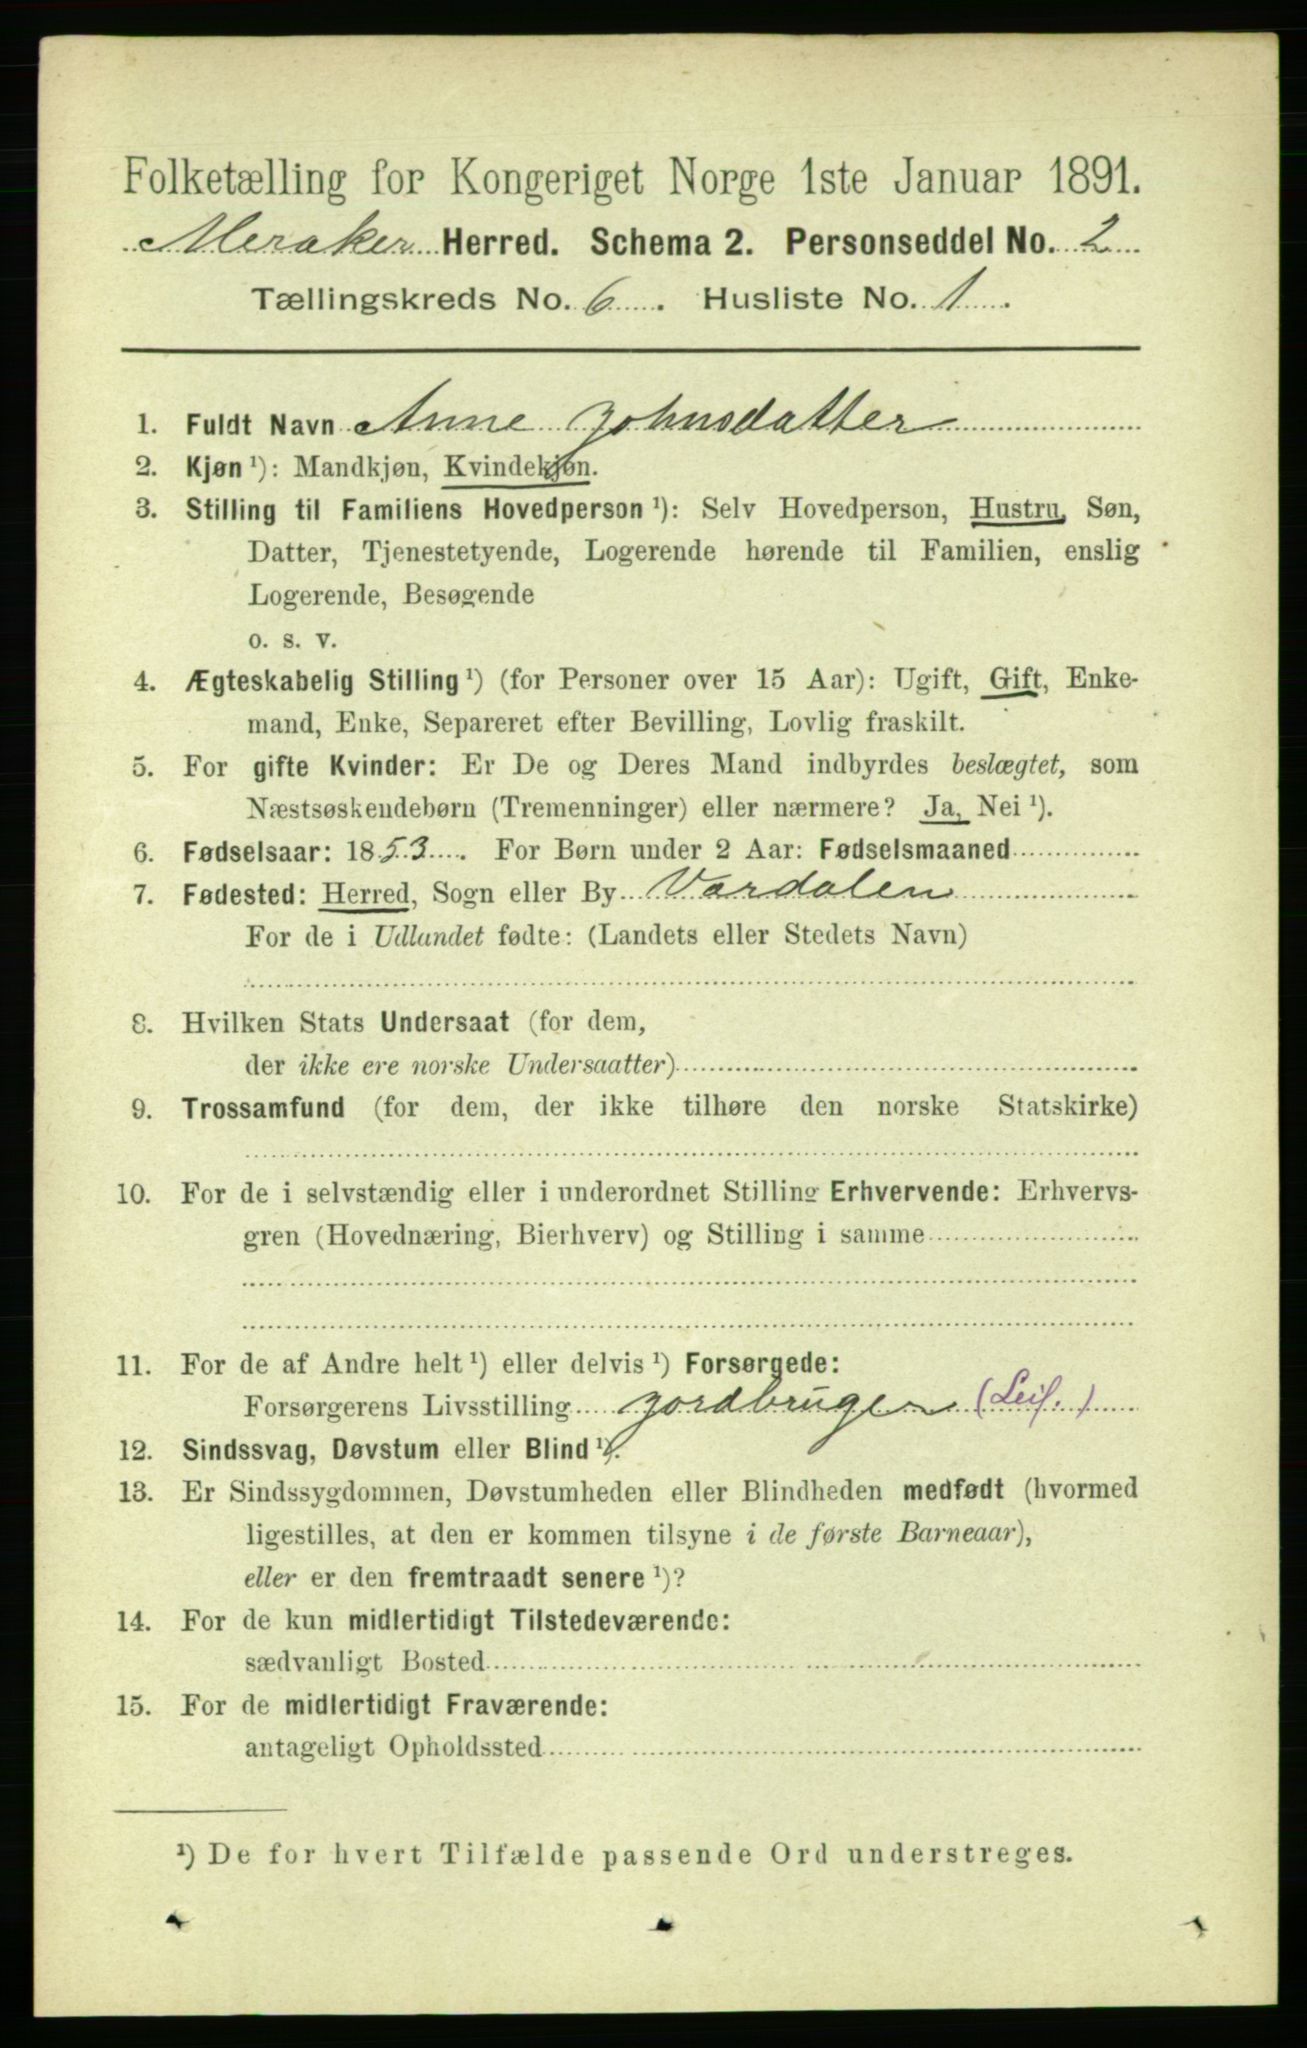 Folketælling for Kongeriget Norge 1ste Januar 1891.
Meraker Herred. Schema 2. Personseddel No. 2
Tællingskreds No. 6. Husliste No. 1.
1. Fuldt Navn Anne Johnsdatter
2. Kjøn ¹): Mandkjøn, Kvindekjøn.
3. Stilling til Familiens Hovedperson ¹): Selv Hovedperson, Hustru, Søn,
Datter, Tjenestetyende, Logerende hørende til Familien, enslig
Logerende, Besøgende
o. s. v.
4. Ægteskabelig Stilling ¹) (for Personer over 15 Aar): Ugift, Gift, Enke-
mand, Enke, Separeret efter Bevilling, Lovlig fraskilt.
5. For gifte Kvinder: Er De og Deres Mand indbyrdes beslægtet, som
Næstsøskendebørn (Tremenninger) eller nærmere? Ja, Nei ¹).
6. Fødselsaar: 1853. For Børn under 2 Aar: Fødselsmaaned
7. Fødested: Herred, Sogn eller By Værdalen
For de i Udlandet fødte: (Landets eller Stedets Navn)
8. Hvilken Stats Undersaat (for dem,
der ikke ere norske Undersaatter)
9. Trossamfund (for dem, der ikke tilhøre den norske Statskirke)
10. For de i selvstændig eller i underordnet Stilling Erhvervende: Erhvervs-
gren (Hovednæring, Bierhverv) og Stilling i samme
11. For de af Andre helt ¹) eller delvis ¹) Forsørgede:
Forsørgerens Livsstilling Jordbruger (Leil.)
12. Sindssvag, Døvstum eller Blind ¹).
13. Er Sindssygdommen, Døvstumheden eller Blindheden medfødt (hvormed
ligestilles, at den er kommen tilsyne i de første Barneaar),
eller er den fremtraadt senere ¹)?
14. For de kun midlertidigt Tilstedeværende:
sædvanligt Bosted
15. For de midlertidigt Fraværende:
antageligt Opholdssted
¹) De for hvert Tilfælde passende Ord understreges.